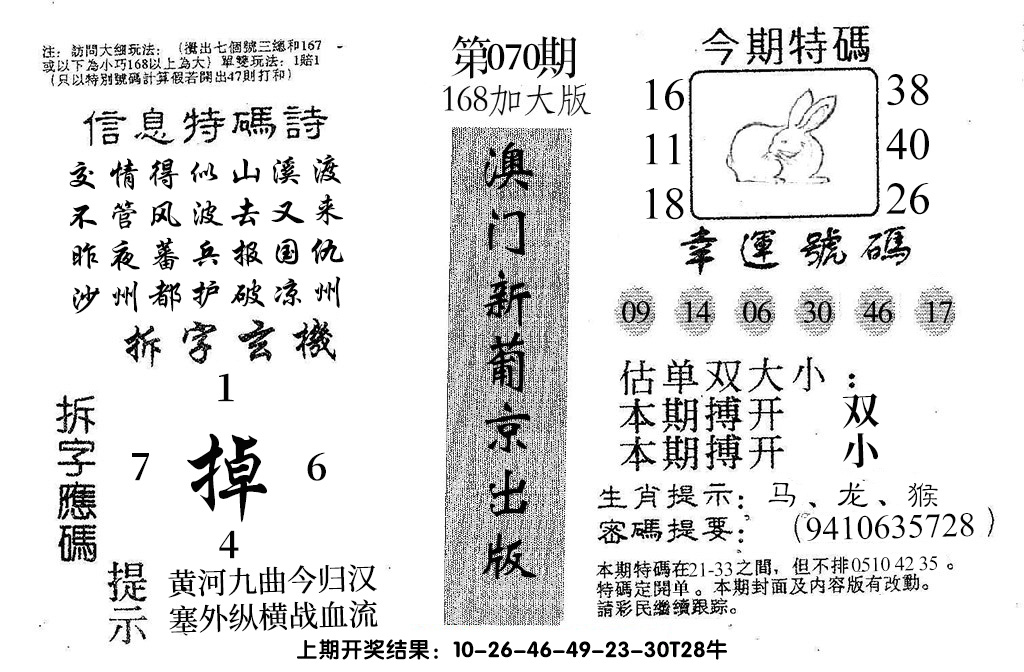 注：訪問大细玩法：（攪出七個號三總和167
或以下為小巧168以上為大）單雙玩法：1賠1
（只以特別號碼計算假若開出47則打和）
信息特碼詩
交情得似山溪渡
不管风波去又来
昨夜蕃兵报国仇
沙州都护破凉州
拆字玄機
拆字應碼
1
7 掉 6
4
提示
黄河九曲今归汉
塞外纵横战血流
第070期
168加大版
澳门新葡京出版
今期特碼
16 38
11 40
18 26
幸運號碼
09 14 06 30 46 17
估单双大小：
本期搏开 双
本期搏开 小
生肖提示：马、龙、猴
密碼提要：（9410635728）
本期特碼在21-33之間，但不排0510 42 35。
特碼定開单。本期封面及内容版有改動。
請彩民繼續跟踪。
上期开奖结果：10-26-46-49-23-30T28牛